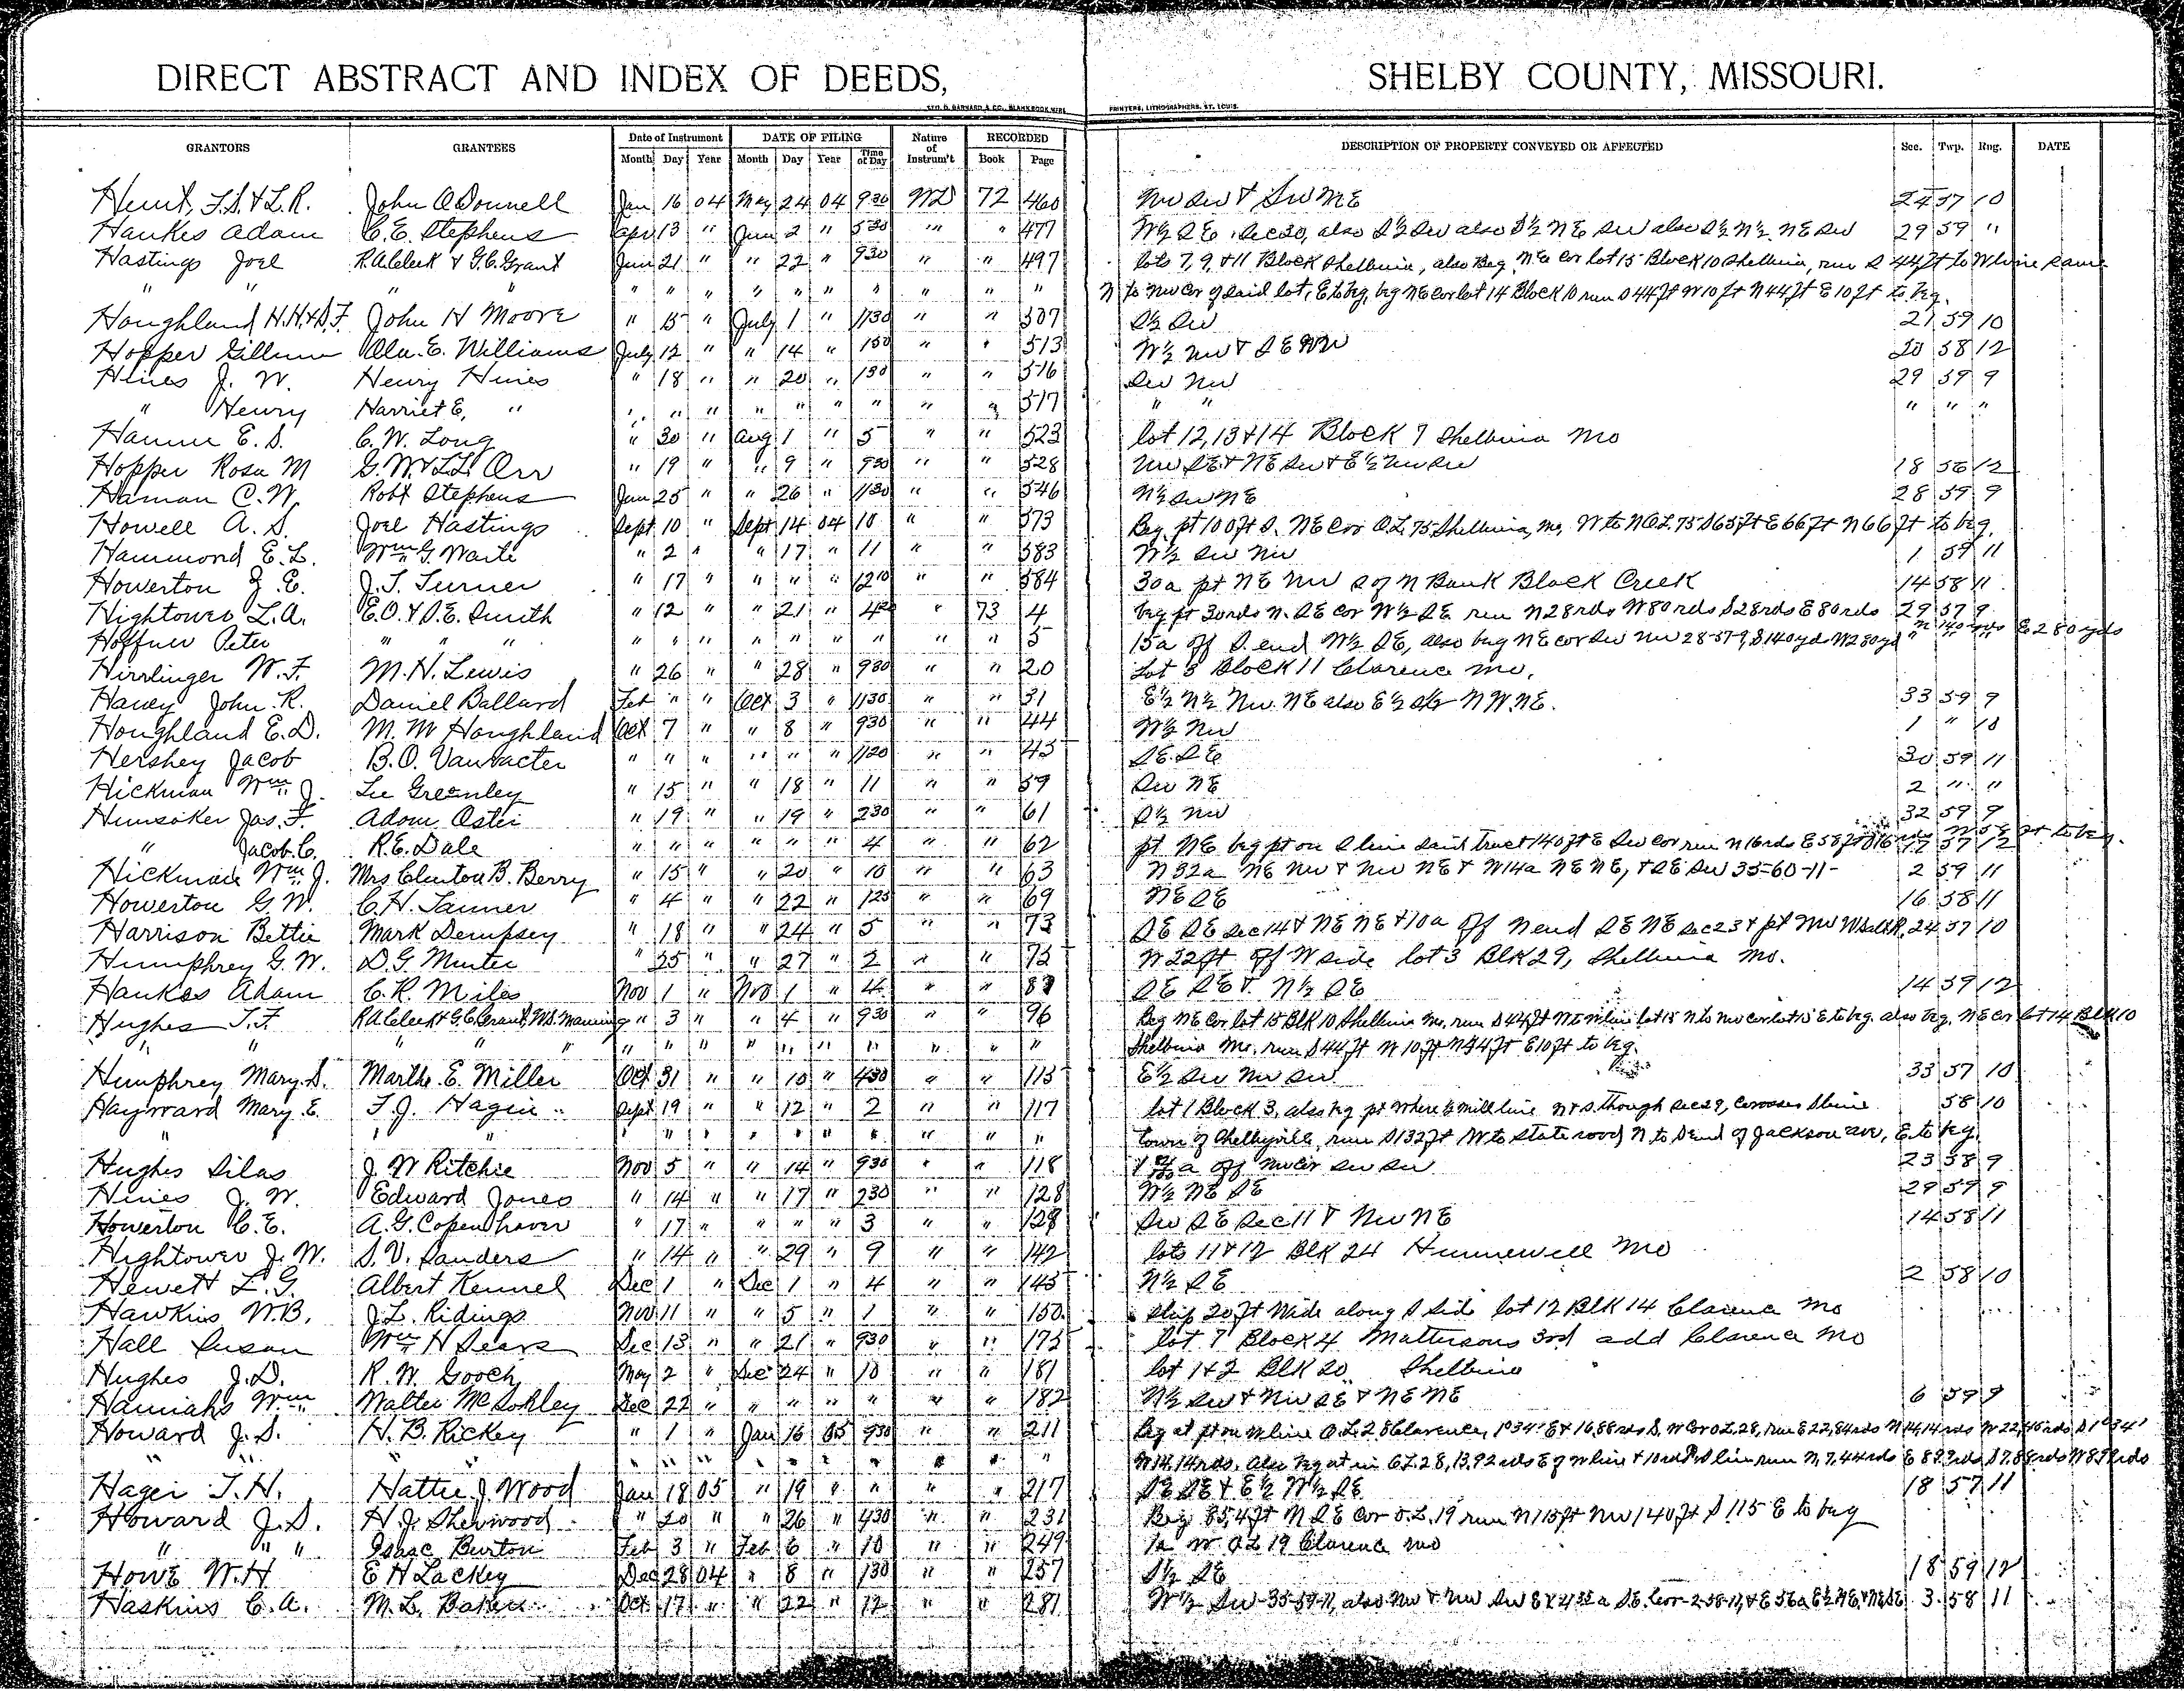 DIRECT ABSTRACT AND INDEX OF DEEDS, SHELBY COUNTY, MISSOURI.
GEO. D. BARNARD & CO., BLANK BOOK MFRS PRINTERS, LITHOGRAPHERS, ST. LOUIS.
GRANTORS GRANTEES Date of Instrument DATE OF FILING Nature of Instrum't RECORDED DESCRIPTION OF PROPERTY CONVEYED OR AFFECTED Sec. Twp. Rng. DATE
Month Day Year Month Day Year Time of Day Book Page
Hunt, F.S. & L.R. John O Donnell Jan 16 04 May 24 04 930 WD 72 460 NW SW & SW NE 24 57 10
Hankes Adam C.E. Stephens Apr 13 " June 2 " 530 " " 477 W½ SE Sec 20, also S½ SW also S½ NE SW also S½ N½ NE SW 29 59 "
Hastings Joel R.A. Cleek & G.C. Grant June 21 " " 22 " 930 " " 497 lots 7, 9, & 11 Block Shelbina, also Beg NE Cor lot 15 Block 10 Shelbina, run S 44ft to W line same
" " " " " " " " " " " " " N to NW Cor of said lot, E to beg, beg NE Cor lot 14 Block 10 run S 44ft W 10ft N 44ft E 10ft to beg.
Houghland H.H. & S.F. John H Moore " 15 " July 1 " 1130 " " 507 S½ SW 21 59 10
Hopper Gillum Ola. E. Williams July 12 " " 14 " 150 " " 513 W½ NW & SE NW 20 58 12
Hines J. W. Henry Hines " 18 " " 20 " 130 " " 516 SW NW 29 59 9
" Henry Harriet E, " " " " " " " " " " 517 " " " " "
Hamm E. S. C. W. Long " 30 " Aug 1 " 5 " " 523 lot 12, 13 & 14 Block 7 Shelbina Mo
Hopper Rosa M G. W. & L.L. Orr " 19 " " 9 " 930 " " 528 NW SE & NE SW & E½ NW SW 18 56 12
Haman C. W. Robt Stephens Jan 25 " " 26 " 1130 " " 546 N½ SW NE 28 59 9
Howell A. S. Joel Hastings Sept 10 " Sept 14 04 10 " " 573 Beg pt 100ft S. NE Cor O.L. 75 Shelbina, Mo, W to N O.L. 75 S 65ft E 66ft N 66ft to beg.
Hammond E. L. Wm G. Waite " 2 " " 17 " 11 " " 583 W½ SW NW 1 59 11
Howerton J. E. J. T. Turner " 17 " " " " 1210 " " 584 30a pt NE NW S of N Bank Black Creek 14 58 11
Hightower L. A. E. O. & S. E. Smith " 12 " " 21 " 4 " 73 4 beg pt 30rds N. SE Cor W½ SE run N 28rds W 80 rds S 28rds E 80 rds 29 57 9
Hoffner Peter " " " " " " " " " " " " 5 15a off S. end W½ SE, also beg NE cor SW NW 28-57-9, S 140yd W 280yd N 140yds E 280yds
Hirrlinger W. F. M. H. Lewis " 26 " " 28 " 930 " " 20 Lot 8 Block 11 Clarence Mo.
Haney John R. Daniel Ballard Feb " " Oct 3 " 1130 " " 31 E½ N½ NW. NE also E½ S½ NW NE. 33 59 9
Houghland E. D. M. M Houghland Oct 7 " " 8 " 930 " " 44 W½ NW 1 " 10
Hershey Jacob B. O. Vanvacter " " " " " " 1120 " " 45 SE. SE 30 59 11
Hickman Wm J. Lee Greenley " 15 " " 18 " 11 " " 59 SW NE 2 " "
Hunsoker Jas. F. Adam Oster " 19 " " 19 " 230 " " 61 S½ NW 32 59 9
" Jacob C. R. E. Dale " " " " " " 4 " " 62 pt NE beg pt on S line said tract 140ft E SW Cor run N 16rds E 58ft S 16 rds W 58 ft to beg. 17 57 12
Hickman Wm J. Mrs Clinton B. Berry " 15 " " 20 " 10 " " 63 N 32a NE NW & NW NE & N 14a NE NE, & SE SW 35-60-11- 2 59 11
Howerton G. W. C. H. Tanner " 4 " " 22 " 125 " " 69 NE SE 16 58 11
Harrison Bettie Mark Dempsey " 18 " " 24 " 5 " " 73 SE SE Sec 14 & NE NE & 10a off N end SE NE Sec 23 & pt NW W Salt R. 24 57 10
Humphrey G. W. D. G. Minter " 25 " " 27 " 2 " " 75 N 22ft off W side lot 3 Blk 29, Shelbina Mo.
Hankes Adam C. R. Miles Nov 1 " Nov 1 " 4 " " 87 SE SE & N½ SE 14 59 12
Hughes T. F. R.A. Cleek & G.C. Grant, W.S. Manning " 3 " " 4 " 930 " " 96 Beg NE Cor lot 15 Blk 10 Shelbina Mo, run S 44ft W to W line lot 15 N to NW cor lot 15 E to beg. also beg. NE Cor lot 14 Blk 10
" " " " " " " " " " " " " " Shelbina Mo. run S 44ft W 10ft N 44ft E 10ft to beg.
Humphrey Mary S. Martha E. Miller Oct 31 " " 10 " 430 " " 115 E½ SW NW SW 33 57 10
Hayward Mary E. T. J. Hagin Sept 19 " " 12 " 2 " " 117 lot 1 Block 3, also beg pt where ½ mill line N & S. though Sec 29, Crosses S line 58 10
" " " " " " " " " " " town of Shelbyville, run S 132ft W to State road N to S end of Jackson ave, E to beg.
Hughes Silas J. W Ritchie Nov 5 " " 14 " 930 " " 118 a off NW Cor SW SW 23 58 9
Hines J. W. Edward Jones " 14 " " 17 " 230 " " 128 W½ NE SE 29 59 9
Howerton C. E. A. G. Copenhaver " 17 " " " " 3 " " 129 SW SE Sec 11 & NW NE 14 58 11
Hightower J. W. S. V. Sanders " 14 " " 29 " 9 " " 142 lots 11 & 12 Blk 24 Hunnewell Mo
Hewett L. G. Albert Kennel Dec 1 " Dec 1 " 4 " " 145 N½ SE 2 58 10
Hawkins W. B. J. L. Ridings Nov 11 " " 5 " 1 " " 150 Strip 20ft Wide along S side lot 12 Blk 14 Clarence Mo
Hall Susan Wm H Sears Dec 13 " " 21 " 930 " " 175 lot 7 Block 4 Mattersons 3rd add Clarence Mo
Hughes J. D. R. W. Gooch May 2 " Dec 24 " 10 " " 181 lot 1 & 2 Blk 20, Shelbina
Hamiahs Wm Walter McSokley Dec 22 " " " " " " " 182 N½ SW & NW SE & NE NE 6 59 9
Howard J. S. H. B. Rickey " 1 " Jan 16 05 930 " " 211 Beg at pt on W line O.L. 28 Clarence, 1°34' E & 16,88rds S, NW Cor O.L. 28, run E 22,84rds N 14,14rds W 22,45rds S 1°34'
" " " " " " " " " " W 14.14rds, also beg at in O.L. 28, 13,92 rds E of W line & 10rds line run N, 7,44rds E 8,92rds, S 7,88rds W 8,92rds
Hager T. H. Hattie J. Wood Jan 18 05 " 19 " " " " 217 SE SE & E½ W½ SE 18 57 11
Howard J. S. H. J. Sherwood " 20 " " 26 " 430 " " 231 Beg 85,4ft N SE Cor O.L. 19 run N 115ft NW 140ft S 115 E to beg
" " " Isaac Burton Feb 3 " Feb 6 " 10 " " 249 1a W OL 19 Clarence Mo
Howe W. H E H Lackey Dec 28 04 " 8 " 130 " " 257 S½ SE 18 59 12
Haskins C. A. M. L. Baker Oct 17 " " 22 " 12 " " 281 W½ SW-35-59-11, also NW & NW SW Ex a S.E. Cor-2-58-11, & E 56a E½ NE & NE SE 3 58 11